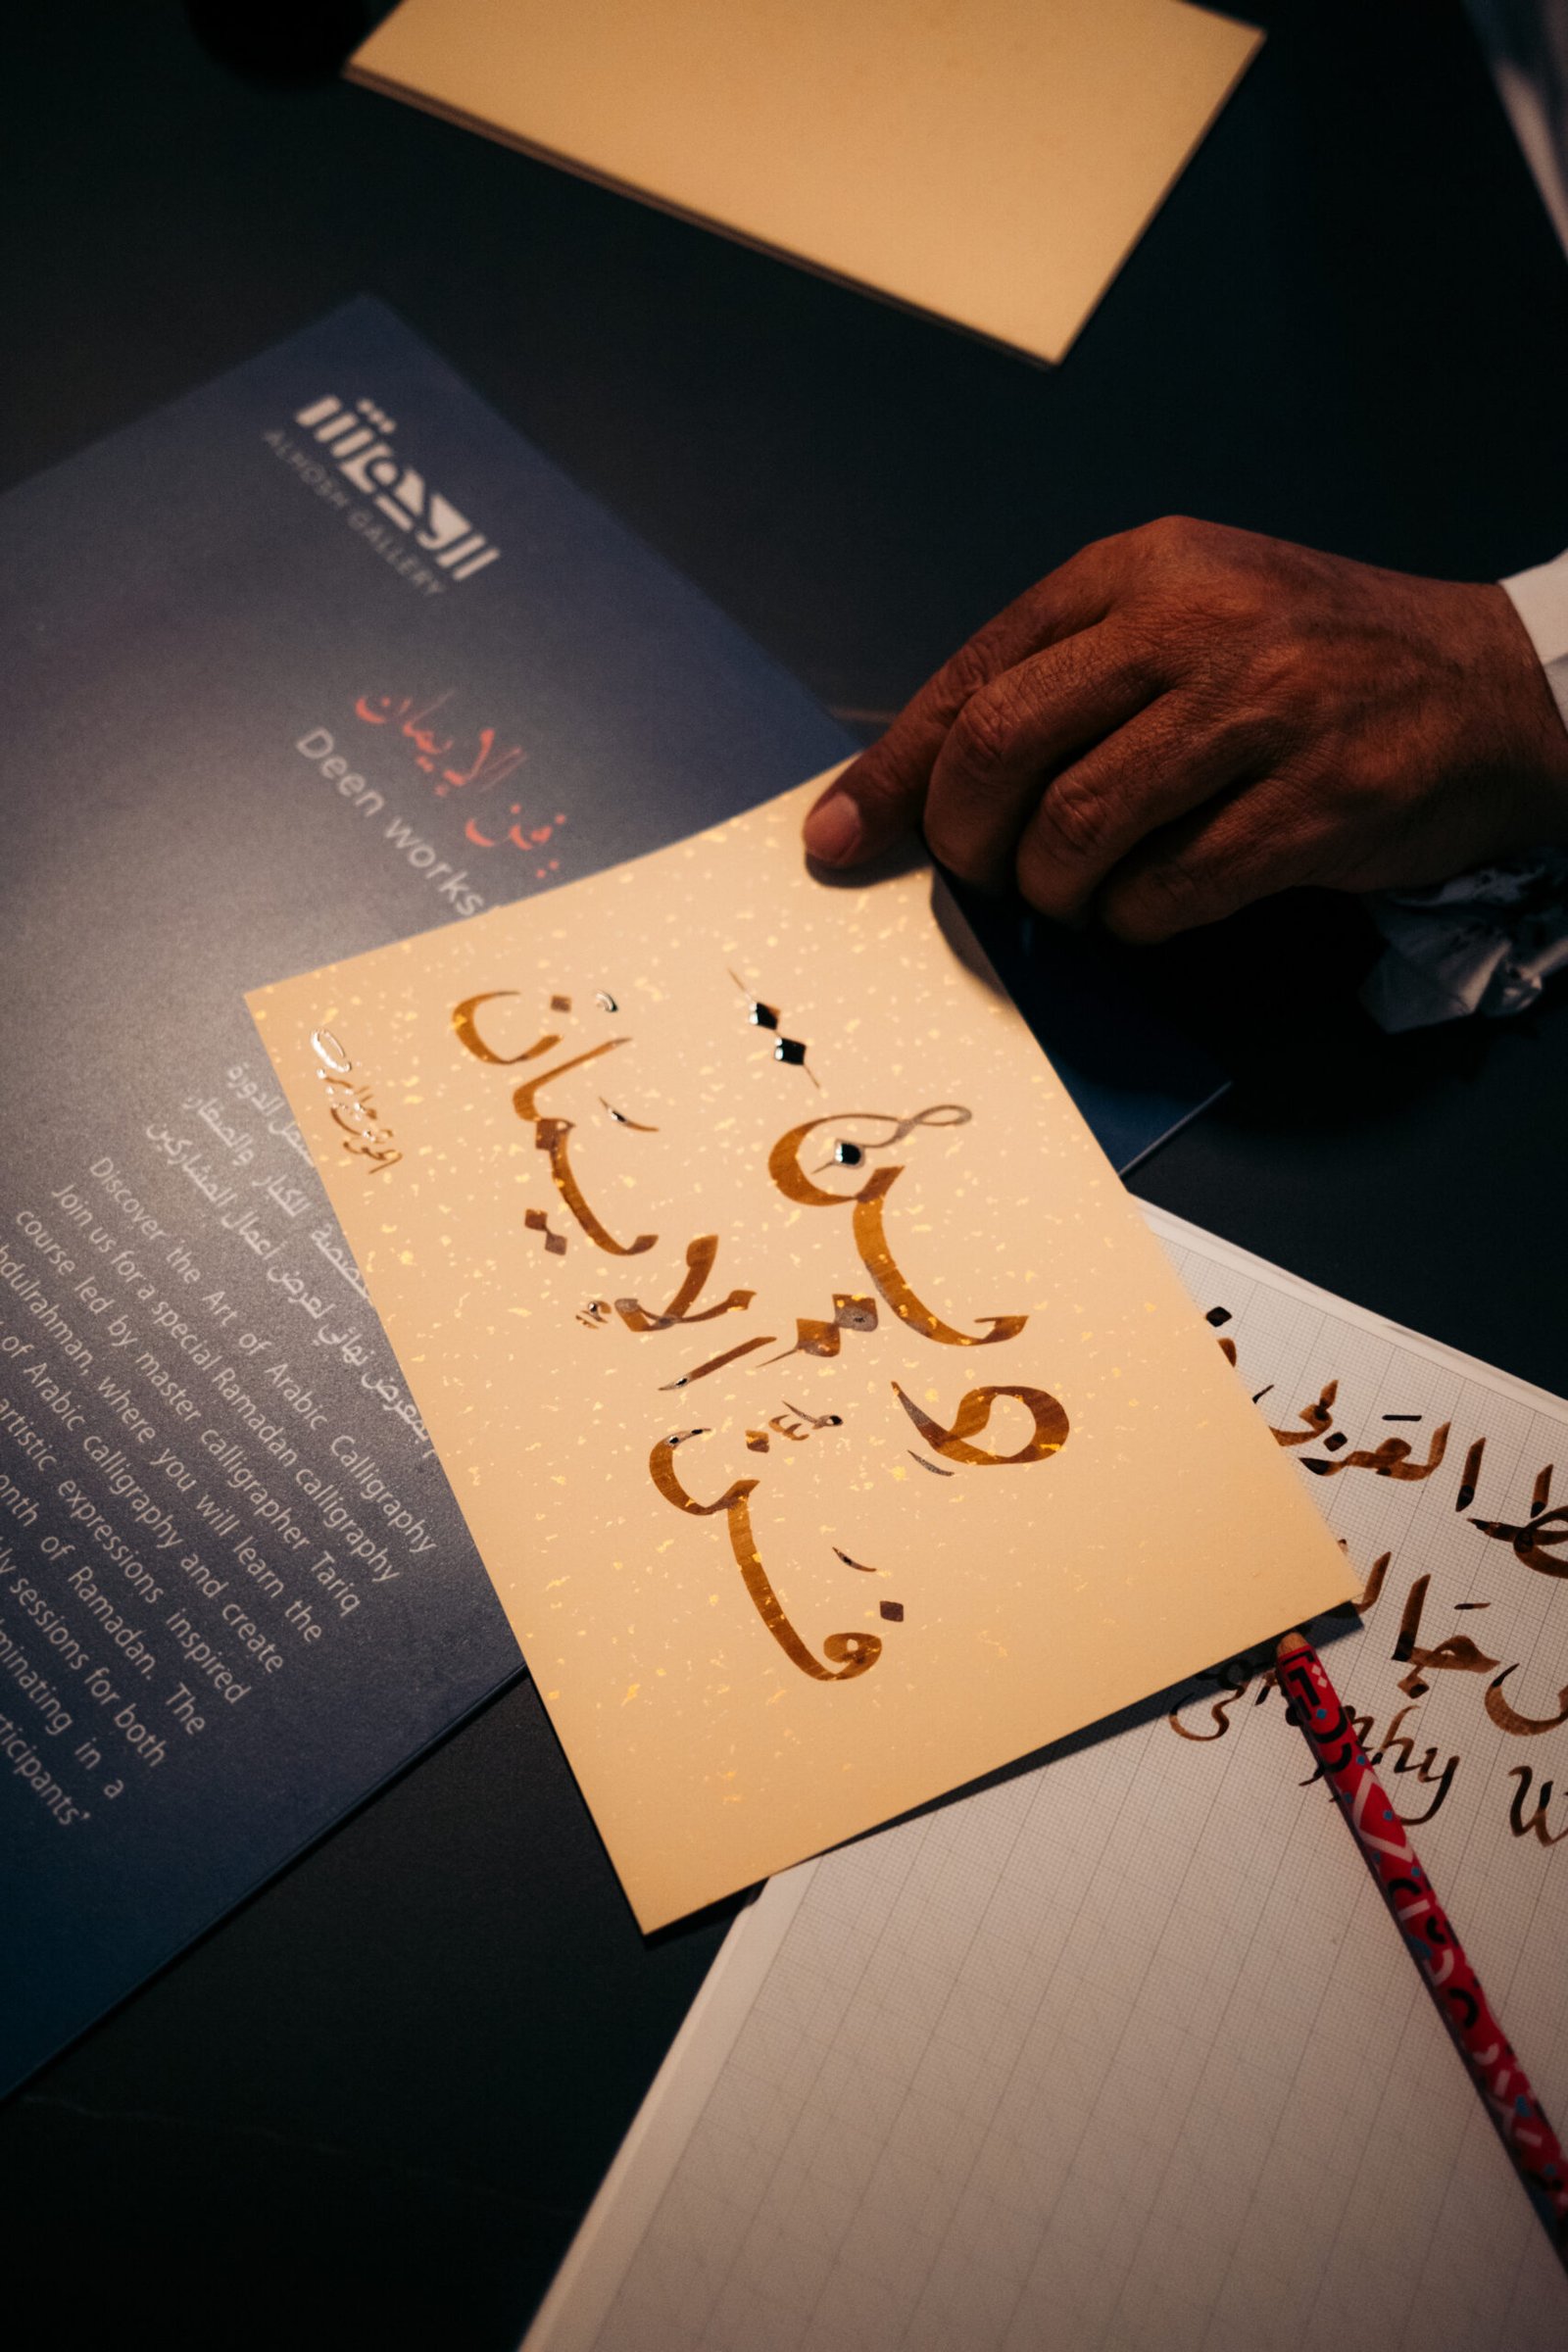 الحوش
ALHOSH GALLERY
فن الإيمان:
Deen works
الدورة
للكبار والصغار،
بمعرض نهائي لعرض أعمال المشاركين
Discover the Art of Arabic Calligraphy
Join us for a special Ramadan calligraphy
course led by master calligrapher Tariq
bdulrahman, where you will learn the
of Arabic calligraphy and create
artistic expressions inspired
onth of Ramadan. The
ly sessions for both
minating in a
rticipants'
فَنُّ الإِيمَانْ
ط العَربي
graphy W